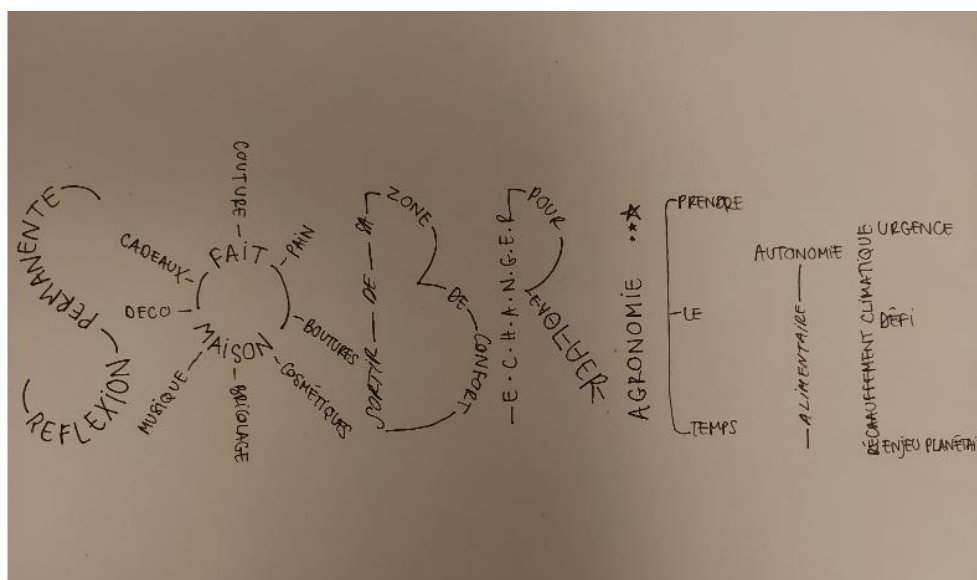 REFLEXION PERMANENTE
FAIT MAISON
COUTURE
PAIN
BOUTURES
COSMÉTIQUES
BRICOLAGE
MUSIQUE
DECO
CADEAUX
SORTIR DE SA
ZONE
DE
CONFORT
E.C.H.A.N.G.E.R
POUR
EVOLUER
AGRONOMIE
PRENDRE
LE
TEMPS
AUTONOMIE
ALIMENTAIRE
RÉCHAUFFEMENT CLIMATIQUE
URGENCE
DÉFI
ENJEU PLANÉTAI